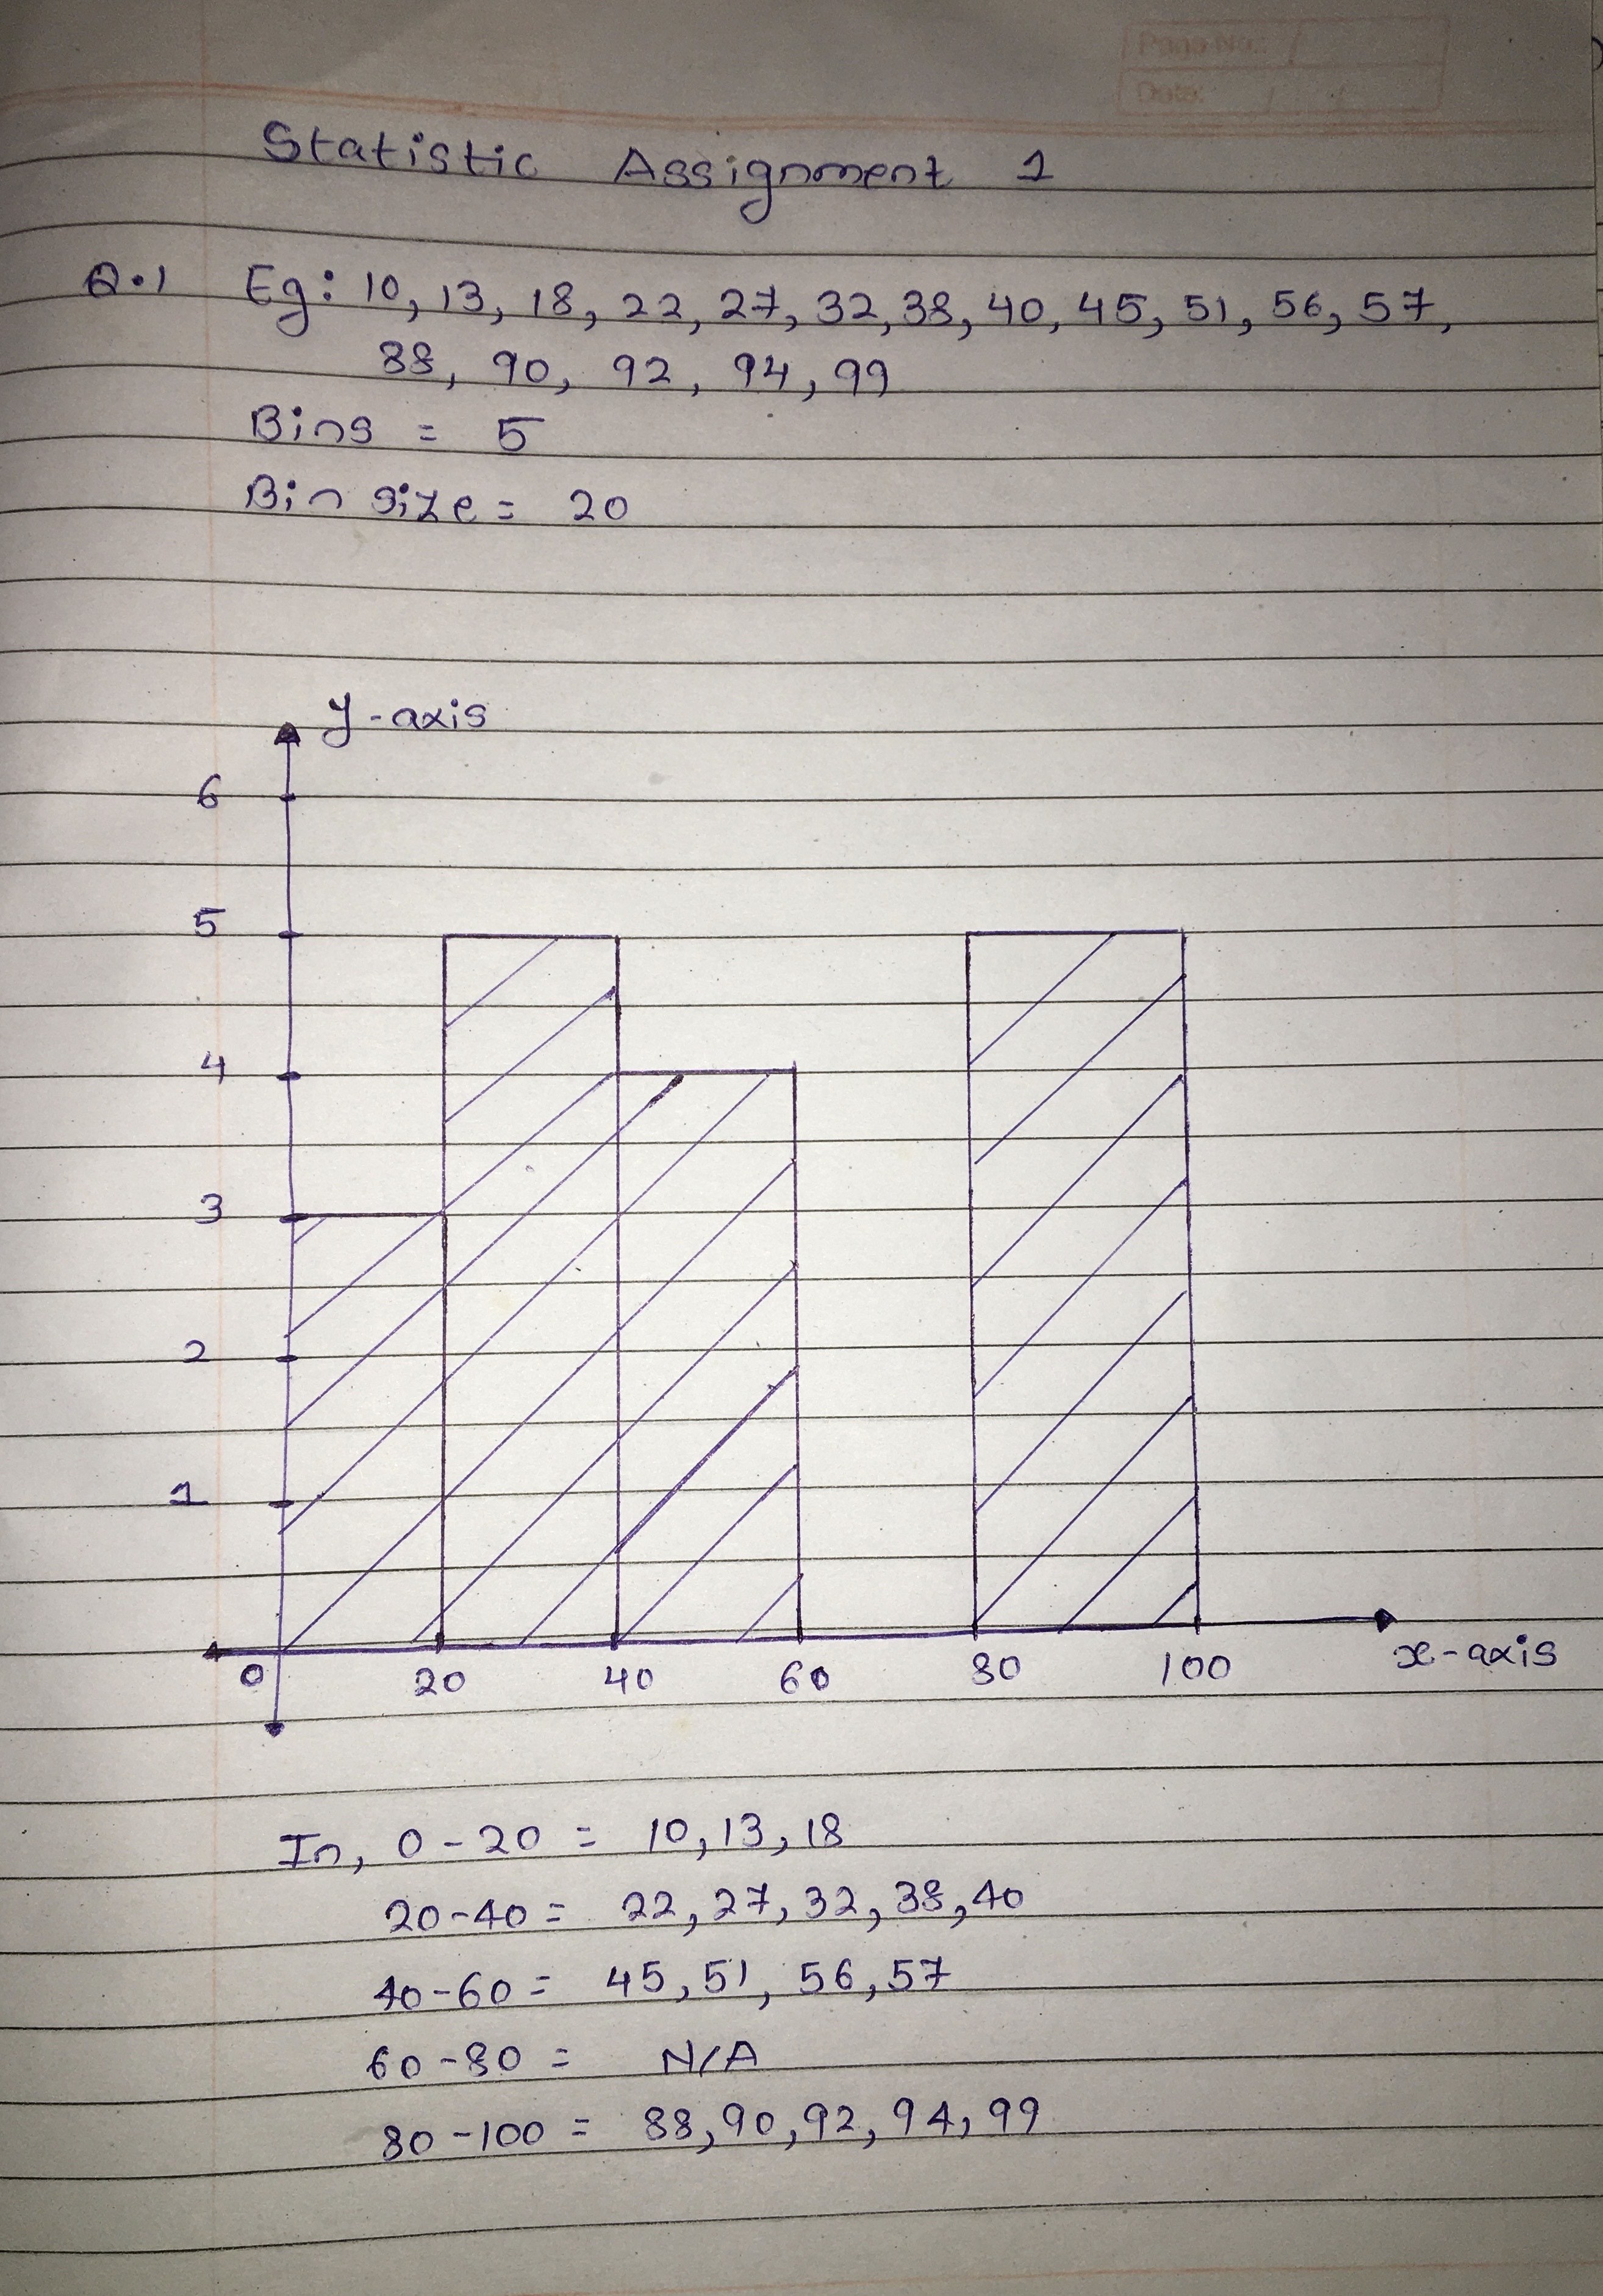 Page No.:
Date: / /
Statistic Assignment 1
Q.1 Eg: 10, 13, 18, 22, 27, 32, 38, 40, 45, 51, 56, 57,
88, 90, 92, 94, 99
Bins = 5
Bin size = 20
y-axis
6
5
4
3
2
1
0 20 40 60 80 100 x-axis
In, 0-20 = 10, 13, 18
20-40 = 22, 27, 32, 38, 40
40-60 = 45, 51, 56, 57
60-80 = N/A
80-100 = 88, 90, 92, 94, 99